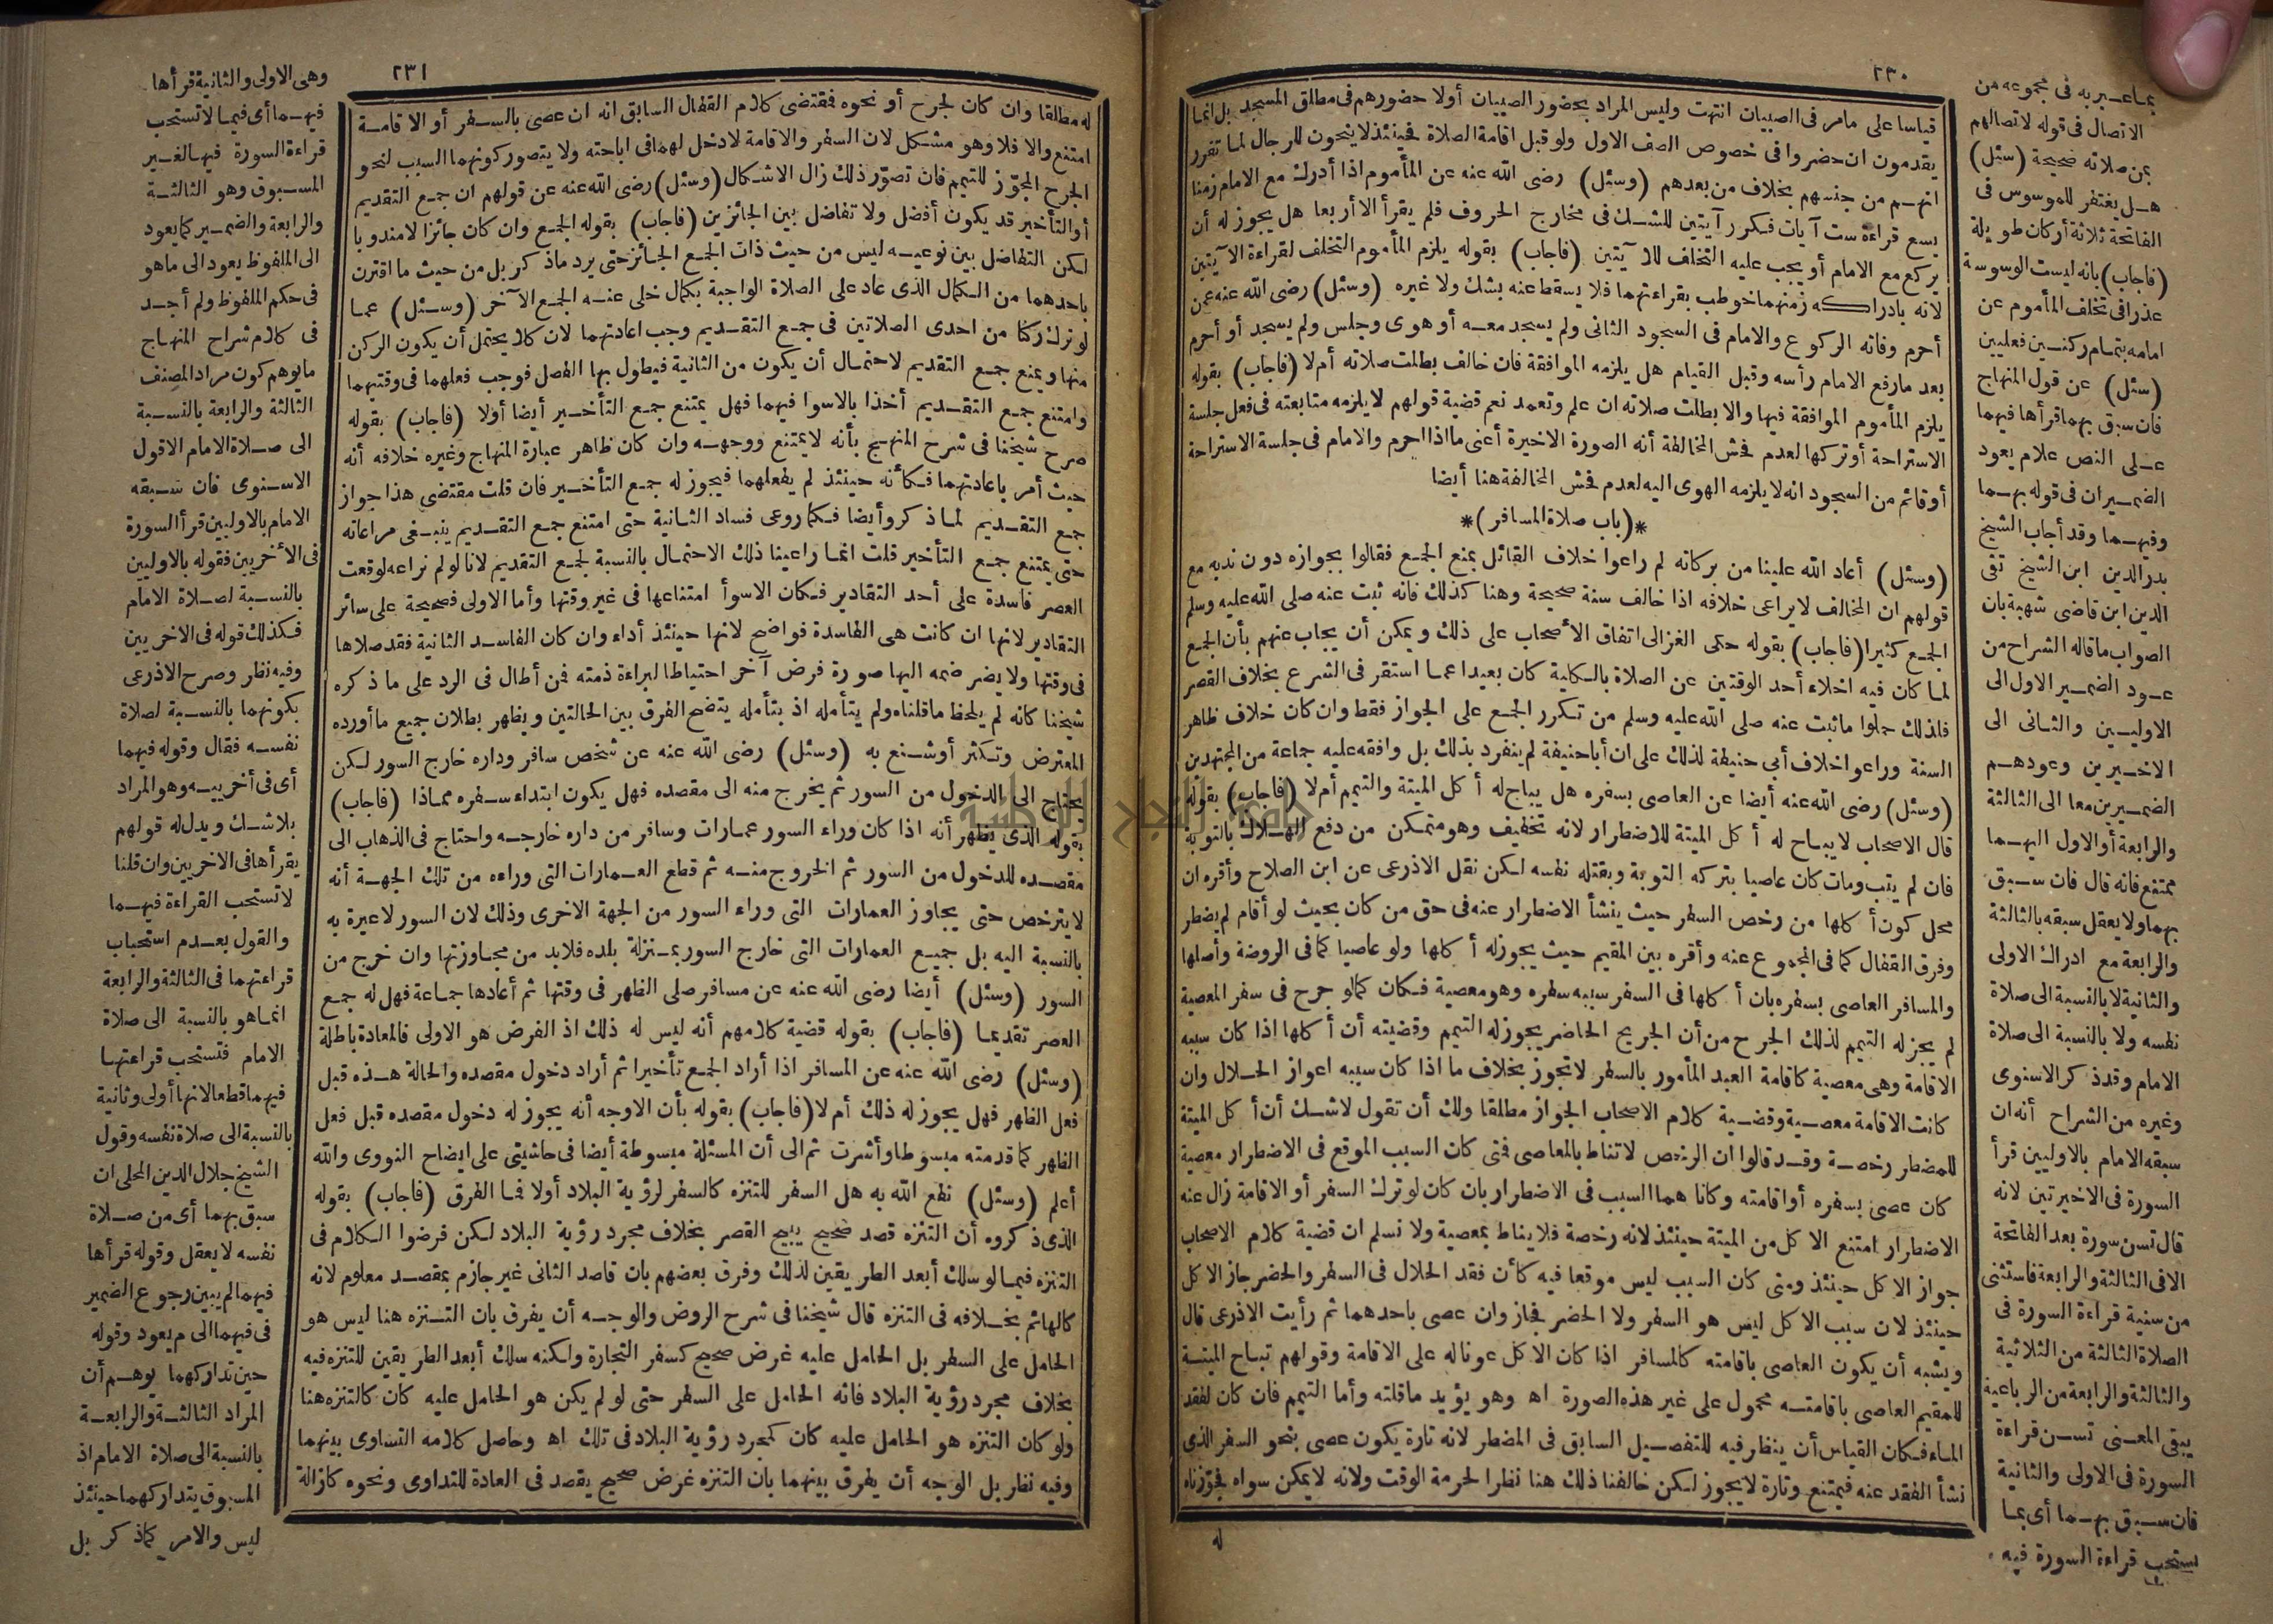 ٢٣٠
قياسا على مامر فى الصبيان انتهت وليس المراد بحضور الصبيان أولا حضورهم فى مطلق المسجد بل انما
يقدمون ان حضروا فى خصوص الصف الاول ولو قبل اقامة الصلاة فحينئذ لا ينحون للرجال لما تقرر
انهم من جنسهم بخلاف من بعدهم (وسئل) رضى الله عنه عن المأموم اذا أدرك مع الامام زمنا
يسع قراءة ست آيات فكرر آيتين للشك فى مخارج الحروف فلم يقرأ الا أربعا هل يجوز له أن
يركع مع الامام أو يجب عليه التخلف للآيتين (فاجاب) بقوله يلزم المأموم التخلف لقراءة الآيتين
لانه بادراكه زمنهما خوطب بقراءتهما فلا يسقط عنه بشك ولا غيره (وسئل) رضى الله عنه عمن
أحرم وفاته الركوع والامام فى السجود الثانى ولم يسجد معه أو هوى وجلس ولم يسجد أو أحرم
بعد مارفع الامام رأسه وقبل القيام هل يلزمه الموافقة فان خالف بطلت صلاته أم لا (فاجاب) بقوله
يلزم المأموم الموافقة فيها والا بطلت صلاته ان علم وتعمد نعم قضية قولهم لا يلزمه متابعته فى فعل جلسة
الاستراحة أوتركها لعدم فحش المخالفة أنه الصورة الاخيرة أعنى ما اذا احرم والامام فى جلسة الاستراحة
أوقائم من السجود انه لا يلزمه الهوى اليه لعدم فحش المخالفة هنا أيضا
*(باب صلاة المسافر)*
(وسئل) أعاد الله علينا من بركاته لم راعوا خلاف القائل بمنع الجمع فقالوا بجوازه دون ندبه مع
قولهم ان المخالف لا يراعى خلافه اذا خالف سنة صحيحة وهنا كذلك فانه ثبت عنه صلى الله عليه وسلم
الجمع كثيرا (فاجاب) بقوله حكى الغزالى اتفاق الأصحاب على ذلك ويمكن أن يجاب عنهم بأن الجمع
لما كان فيه اخلاء أحد الوقتين عن الصلاة بالكلية كان بعيدا عما استقر فى الشرع بخلاف القصر
فلذلك حملوا ماثبت عنه صلى الله عليه وسلم من تكرر الجمع على الجواز فقط وان كان خلاف ظاهر
السنة وراعوا خلاف أبى حنيفة لذلك على ان أباحنيفة لم ينفرد بذلك بل وافقه عليه جماعة من المجتهدين
(وسئل) رضى الله عنه أيضا عن العاصى بسفره هل يباح له أ كل الميتة والتيمم أم لا (فاجاب) بقوله
قال الاصحاب لا يباح له أ كل الميتة للاضطرار لانه تخفيف وهو متمكن من دفع الهلاك بالتوبة
فان لم يتب ومات كان عاصيا بتركه التوبة وبقتله نفسه لكن نقل الاذرعى عن ابن الصلاح وأقره ان
محل كون أ كلها من رخص السفر حيث ينشأ الاضطرار عنه فى حق من كان بحيث لو أقام لم يضطر
وفرق القفال كما فى المجموع عنه وأقره بين المقيم حيث يجوزله أ كلها ولو عاصيا كما فى الروضة وأصلها
والمسافر العاصى بسفره بان أ كلها فى السفر سببه سفره وهو معصية فكان كمالو جرح فى سفر المعصية
لم يجزله التيمم لذلك الجرح من أن الجريح الحاضر يجوز له التيمم وقضيته أن أ كلها اذا كان سببه
الاقامة وهى معصية كاقامة العبد المأمور بالسفر لا تجوز بخلاف ما اذا كان سببه اعواز الحلال وان
كانت الاقامة معصية وقضية كلام الاصحاب الجواز مطلقا ولك أن تقول لاشك أن أ كل الميتة
للمضطر رخصة وقد قالوا ان الرخص لا تناط بالمعاصى فتى كان السبب الموقع فى الاضطرار معصية
كان عصى بسفره أواقامته وكانا هما السبب فى الاضطرار بان كان لو ترك السفر أو الاقامة زال عنه
الاضطرار امتنع الا كل من الميتة حينئذ لانه رخصة فلا يناط بمعصية ولا نسلم ان قضية كلام الاصحاب
جواز الا كل حينئذ ومتى كان السبب ليس موقعا فيه كأن فقد الحلال فى السفر والحضر جاز الا كل
حينئذ لان سبب الا كل ليس هو السفر ولا الحضر فجاز وان عصى باحدهما ثم رأيت الاذرعى قال
ويشبه أن يكون العاصى باقامته كالمسافر اذا كان الا كل عوناله على الاقامة وقولهم تباح الميتة
للمقيم العاصى باقامته محمول على غير هذه الصورة اه وهو يؤيد ماقلته وأما التيمم فان كان لفقد
الماء فكان القياس أن ينظر فيه للتفصيل السابق فى المضطر لانه تارة يكون عصى بنحو السفر الذى
نشأ الفقد عنه فيمتنع وتارة لا يجوز لكن خالفنا ذلك هنا نظرا لحرمة الوقت ولانه لا يمكن سواه فجوزناه
له
بماعبر به فى مجموعه من
الاتصال فى قوله لا تصالهم
بمن صلاته صحيحة (سئل)
هل يغتفر للموسوس فى
الفاتحة ثلاثة أركان طويلة
(فاجاب) بانه ليست الوسوسة
عذرا فى تخلف المأموم عن
امامه بتمام ركنين فعليين
(سئل) عن قول المنهاج
فان سبق بهما قرأها فيهما
على النص علام يعود
الضميران فى قوله بهما
وفيهما وقد أجاب الشيخ
بدر الدين ابن الشيخ تقى
الدين ابن قاضى شهبة بان
الصواب ماقاله الشراح من
عود الضمير الاول الى
الاوليين والثانى الى
الاخيرين وعودهم
الضميرين معا الى الثالثة
والرابعة أو الاول اليهما
ممتنع فانه قال فان سبق
بهما ولا يعقل سبقه بالثالثة
والرابعة مع ادراك الاولى
والثانية لا بالنسبة الى صلاة
نفسه ولا بالنسبة الى صلاة
الامام وقد ذكر الاسنوى
وغيره من الشراح أنه ان
سبقه الامام بالاوليين قرأ
السورة فى الاخيرتين لانه
قال تسن سورة بعد الفاتحة
الا فى الثالثة والرابعة فاستثنى
من سنية قراءة السورة فى
الصلاة الثالثة من الثلاثية
والثالثة والرابعة من الرباعية
يبقى المعنى تسن قراءة
السورة فى الاولى والثانية
فان سبق بهما أى بما
يستحب قراءة السورة فيه
٢٣١
له مطلقا وان كان لجرح أو نحوه فقتضى كلام القفال السابق انه ان عصى بالسفر أو الاقامة
امتنع والا فلا وهو مشكل لان السفر والاقامة لا دخل لهما فى اباحته ولا يتصور كونهما السبب لنحو
الجرح المجوز للتيمم فان تصور ذلك زال الاشكال (وسئل) رضى الله عنه عن قولهم ان جمع التقديم
أوالتأخير قد يكون أفضل ولا تفاضل بين الجائزين (فاجاب) بقوله الجمع وان كان جائزا لامندوبا
لكن التفاضل بين نوعيه ليس من حيث ذات الجمع الجائز حتى يرد ماذكر بل من حيث ما اقترن
باحدهما من الكمال الذى عاد على الصلاة الواجبة بكمال خلى عنه الجمع الآخر (وسئل) عما
لو ترك ركنا من احدى الصلاتين فى جمع التقديم وجب اعادتهما لان كلا يحتمل أن يكون الركن
منها ويمنع جمع التقديم لاحتمال أن يكون من الثانية فيطول بها الفصل فوجب فعلهما فى وقتيهما
وامتنع جمع التقديم أخذا بالاسوا فيهما فهل يمتنع جمع التأخير أيضا أولا (فاجاب) بقوله
صرح شيخنا فى شرح المنهج بأنه لا يمتنع ووجهه وان كان ظاهر عبارة المنهاج وغيره خلافه أنه
حيث أمر باعادتهما فكأنه حينئذ لم يفعلهما فيجوز له جمع التأخير فان قلت مقتضى هذا جواز
جمع التقديم لما ذكر وأيضا فكما روعى فساد الثانية حتى امتنع جمع التقديم ينبغى مراعاته
حتى يمتنع جمع التأخير قلت انما راعينا ذلك الاحتمال بالنسبة لجمع التقديم لانا لو لم نراعه لوقعت
العصر فاسدة على أحد التقادير فكان الاسوأ امتناعها فى غير وقتها وأما الاولى فصحيحة على سائر
التقادير لانها ان كانت هى الفاسدة فواضح لانها حينئذ أداء وان كان الفاسد الثانية فقد صلاها
فى وقتها ولا يضر ضمه اليها صورة فرض آخر احتياطا لبراءة ذمته فمن أطال فى الرد على ما ذكره
شيخنا كانه لم يلحظ ماقلناه ولم يتأمله اذ بتأمله يتضح الفرق بين الحالتين ويظهر بطلان جميع ما أورده
المعترض وتكثر أوشنع به (وسئل) رضى الله عنه عن شخص سافر وداره خارج السور لكن
يحتاج الى الدخول من السور ثم يخرج منه الى مقصده فهل يكون ابتداء سفره مماذا (فاجاب)
بقوله الذى يظهر أنه اذا كان وراء السور عمارات وسافر من داره خارجه واحتاج فى الذهاب الى
مقصده للدخول من السور ثم الخروج منه ثم قطع العمارات التى وراءه من تلك الجهة أنه
لا يترخص حتى يجاوز العمارات التى وراء السور من الجهة الاخرى وذلك لان السور لا عبرة به
بالنسبة اليه بل جميع العمارات التى خارج السور بمنزلة بلده فلابد من مجاوزتها وان خرج من
السور (وسئل) أيضا رضى الله عنه عن مسافر صلى الظهر فى وقتها ثم أعادها جماعة فهل له جمع
العصر تقديما (فاجاب) بقوله قضية كلامهم أنه ليس له ذلك اذ الفرض هو الاولى فالمعادة باطلة
(وسئل) رضى الله عنه عن المسافر اذا أراد الجمع تأخيرا ثم أراد دخول مقصده والحالة هذه قبل
فعل الظهر فهل يجوز له ذلك أم لا (فاجاب) بقوله بأن الاوجه أنه يجوز له دخول مقصده قبل فعل
الظهر كما قدمته مبسوطا وأشرت ثم الى أن المسئلة مبسوطة أيضا فى حاشيتى على ايضاح النووى والله
أعلم (وسئل) نفع الله به هل السفر للتنزه كالسفر لرؤية البلاد أولا فما الفرق (فاجاب) بقوله
الذى ذكروه أن التنزه قصد صحيح يبيح القصر بخلاف مجرد رؤية البلاد لكن فرضوا الكلام فى
التنزه فيما لو سلك أبعد الطريقين لذلك وفرق بعضهم بان قاصد الثانى غير جازم بمقصد معلوم لانه
كالهائم بخلافه فى التنزه قال شيخنا فى شرح الروض والوجه أن يفرق بان التنزه هنا ليس هو
الحامل على السفر بل الحامل عليه غرض صحيح كسفر التجارة ولكنه سلك أبعد الطريقين للتنزه فيه
بخلاف مجرد رؤية البلاد فانه الحامل على السفر حتى لو لم يكن هو الحامل عليه كان كالتنزه هنا
ولو كان التنزه هو الحامل عليه كان كمجرد رؤية البلاد فى تلك اه وحاصل كلامه التساوى بينهما
وفيه نظر بل الوجه أن يفرق بينهما بان التنزه غرض صحيح يقصد فى العادة للتداوى ونحوه كازالة
وهى الاولى والثانية قرأها
فيهما أى فيما لا تستحب
قراءة السورة فيها لغير
المسبوق وهو الثالثة
والرابعة والضمير كما يعود
الى الملفوظ يعود الى ماهو
فى حكم الملفوظ ولم أجد
فى كلام شراح المنهاج
مايوهم كون مراد المصنف
الثالثة والرابعة بالنسبة
الى صلاة الامام الاقول
الاسنوى فان سبقه
الامام بالاوليين قرأ السورة
فى الأخريين فقوله بالاوليين
بالنسبة لصلاة الامام
فكذلك قوله فى الاخريين
وفيه نظر وصرح الاذرعى
بكونهما بالنسبة لصلاة
نفسه فقال وقوله فيهما
أى فى أخرييه وهو المراد
بلاشك ويدل له قولهم
يقرأها فى الاخريين وان قلنا
لا تستحب القراءة فيهما
والقول بعدم استحباب
قراءتهما فى الثالثة والرابعة
انما هو بالنسبة الى صلاة
الامام فتستحب قراءتها
فيهما قطعا لانها أولى وثانية
بالنسبة الى صلاة نفسه وقول
الشيخ جلال الدين المحلى ان
سبق بهما أى من صلاة
نفسه لا يعقل وقوله قرأها
فيهما لم يبين رجوع الضمير
فى فيهما الى م يعود وقوله
حين تداركهما يوهم أن
المراد الثالثة والرابعة
بالنسبة الى صلاة الامام اذ
المسبوق يتداركهما حينئذ
ليس والامر كماذكر بل